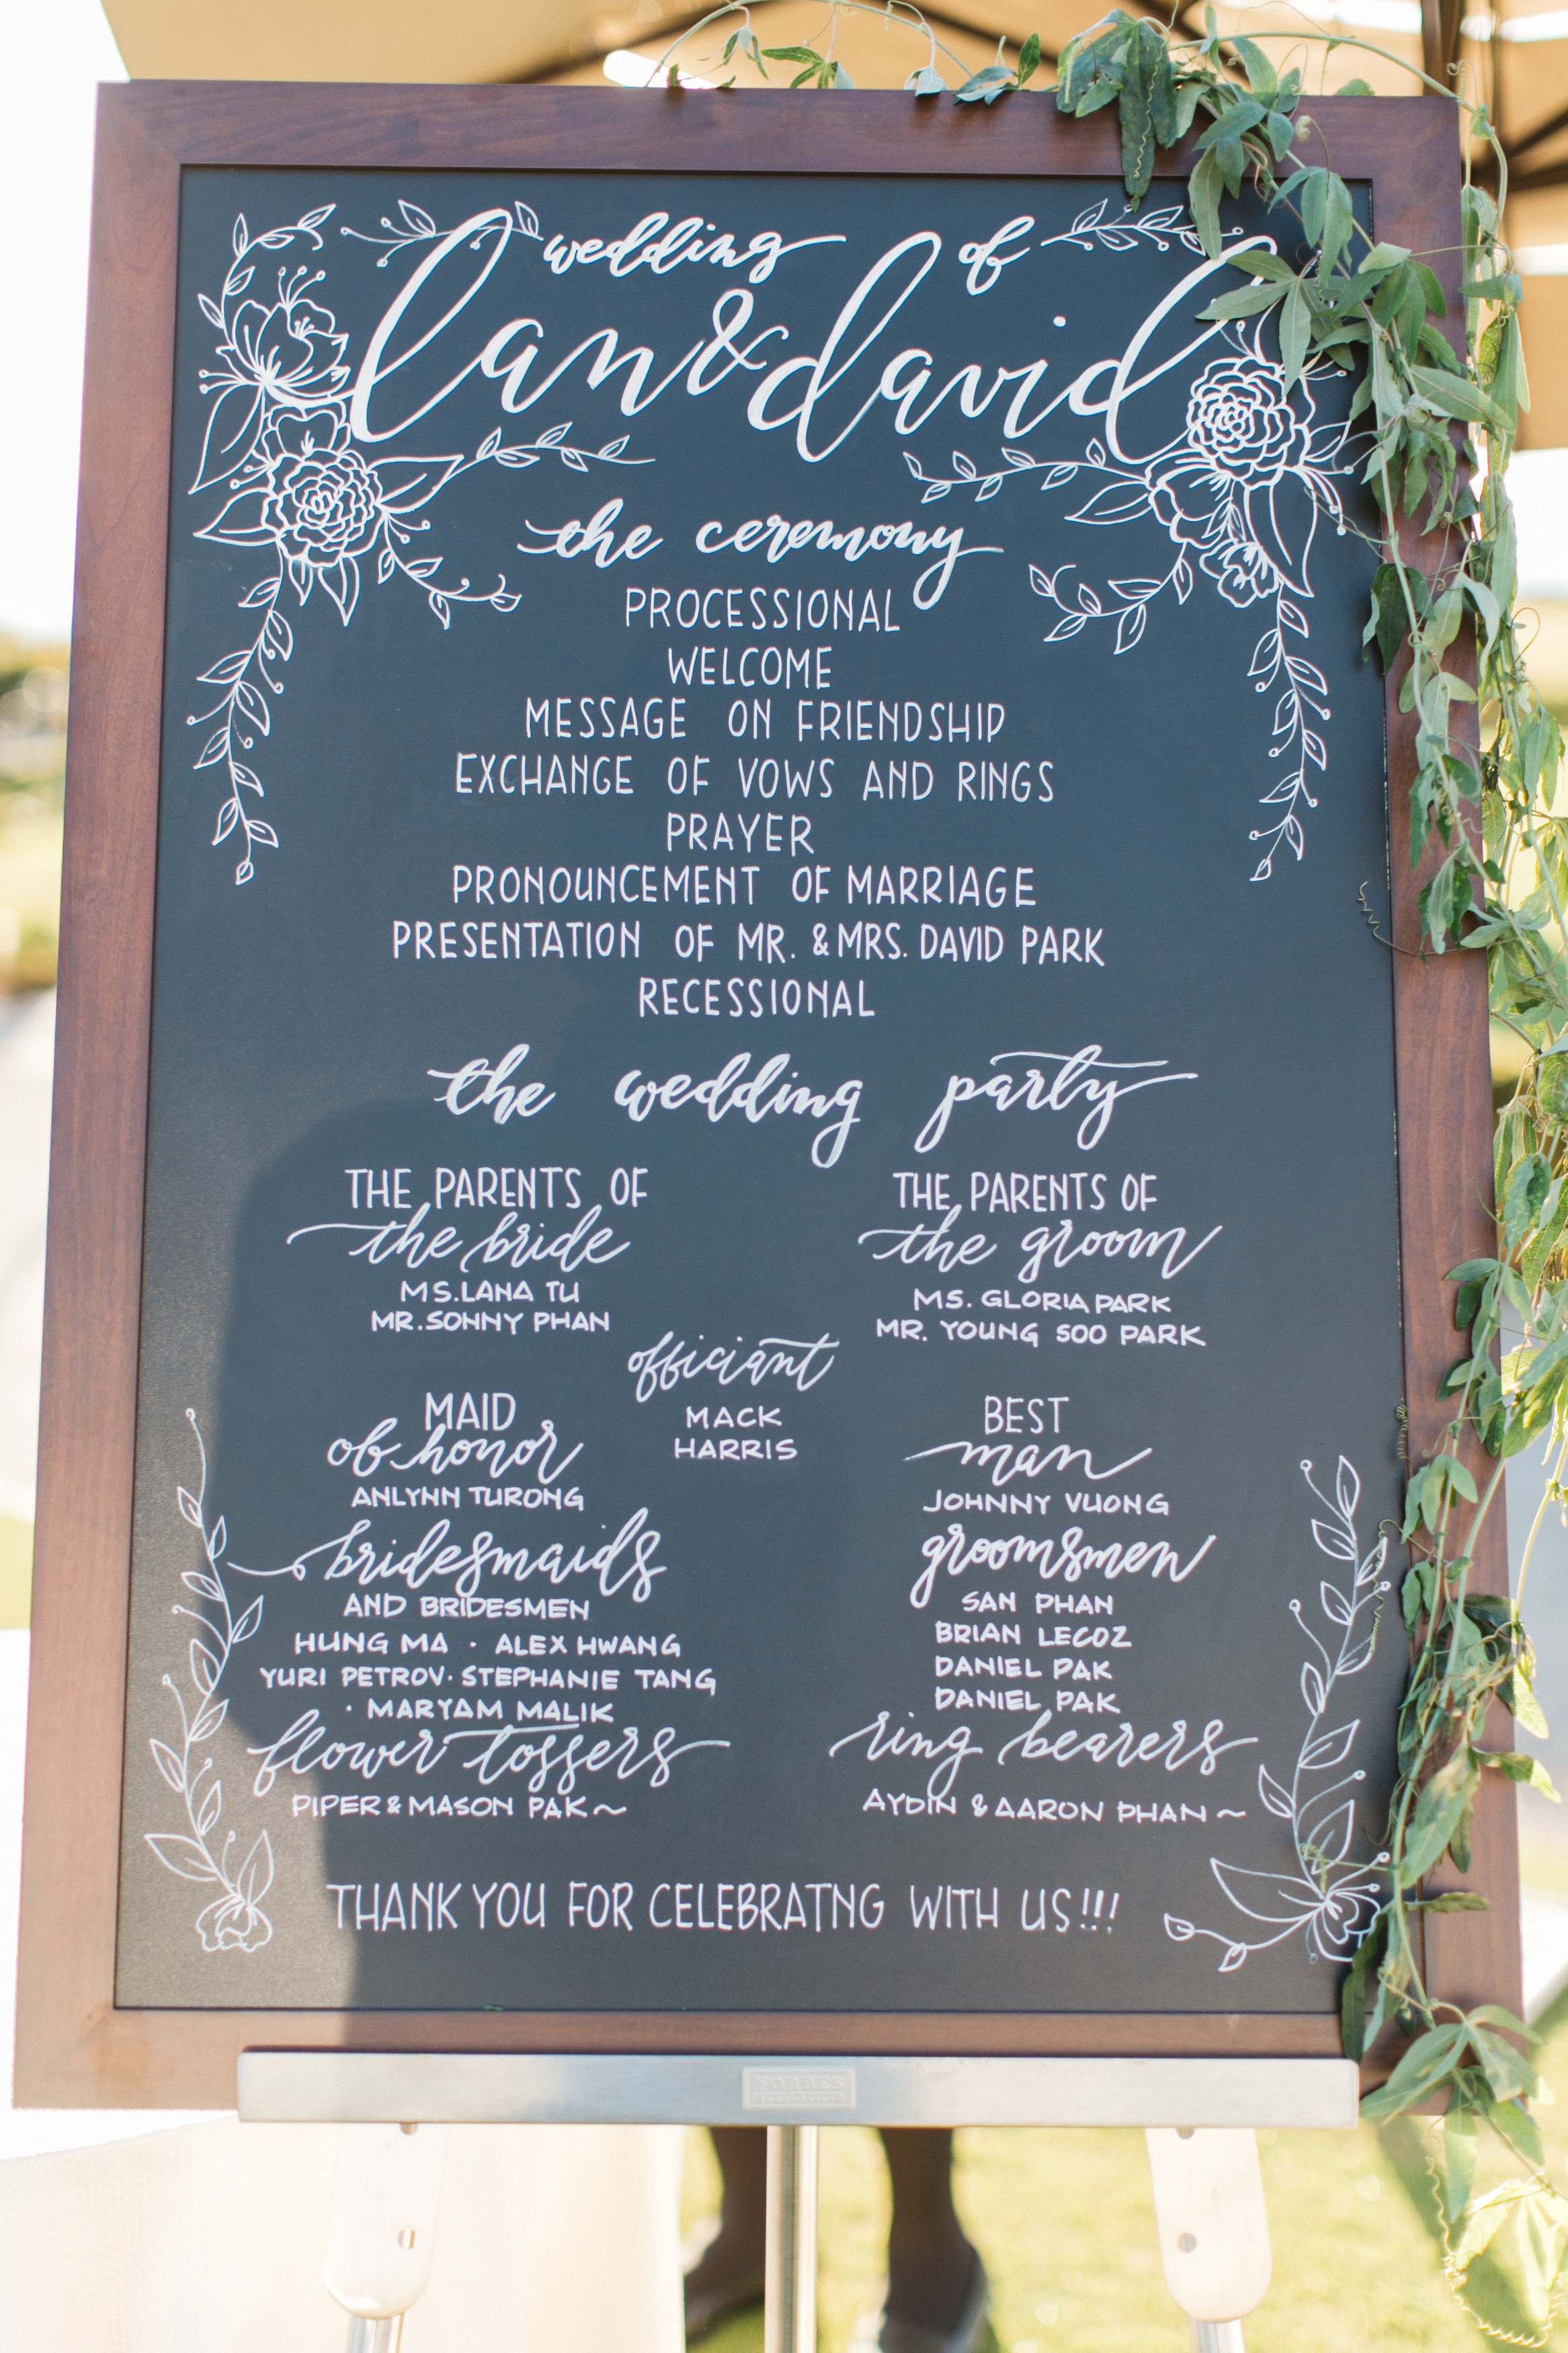 wedding of
lan & david
the ceremony
PROCESSIONAL
WELCOME
MESSAGE ON FRIENDSHIP
EXCHANGE OF VOWS AND RINGS
PRAYER
PRONOUNCEMENT OF MARRIAGE
PRESENTATION OF MR. & MRS. DAVID PARK
RECESSIONAL
the wedding party
THE PARENTS OF
the bride
MS. LANA TU
MR. SONNY PHAN
THE PARENTS OF
the groom
MS. GLORIA PARK
MR. YOUNG SOO PARK
officiant
MACK
HARRIS
MAID
of honor
ANLYNN TURONG
BEST
man
JOHNNY VUONG
bridesmaids
AND BRIDESMEN
HUNG MA · ALEX HWANG
YURI PETROV · STEPHANIE TANG
· MARYAM MALIK
groomsmen
SAN PHAN
BRIAN LECOZ
DANIEL PAK
DANIEL PAK
flower tossers
PIPER & MASON PAK ~
ring bearers
AYDIN & AARON PHAN ~
THANK YOU FOR CELEBRATNG WITH US!!!
FORBES